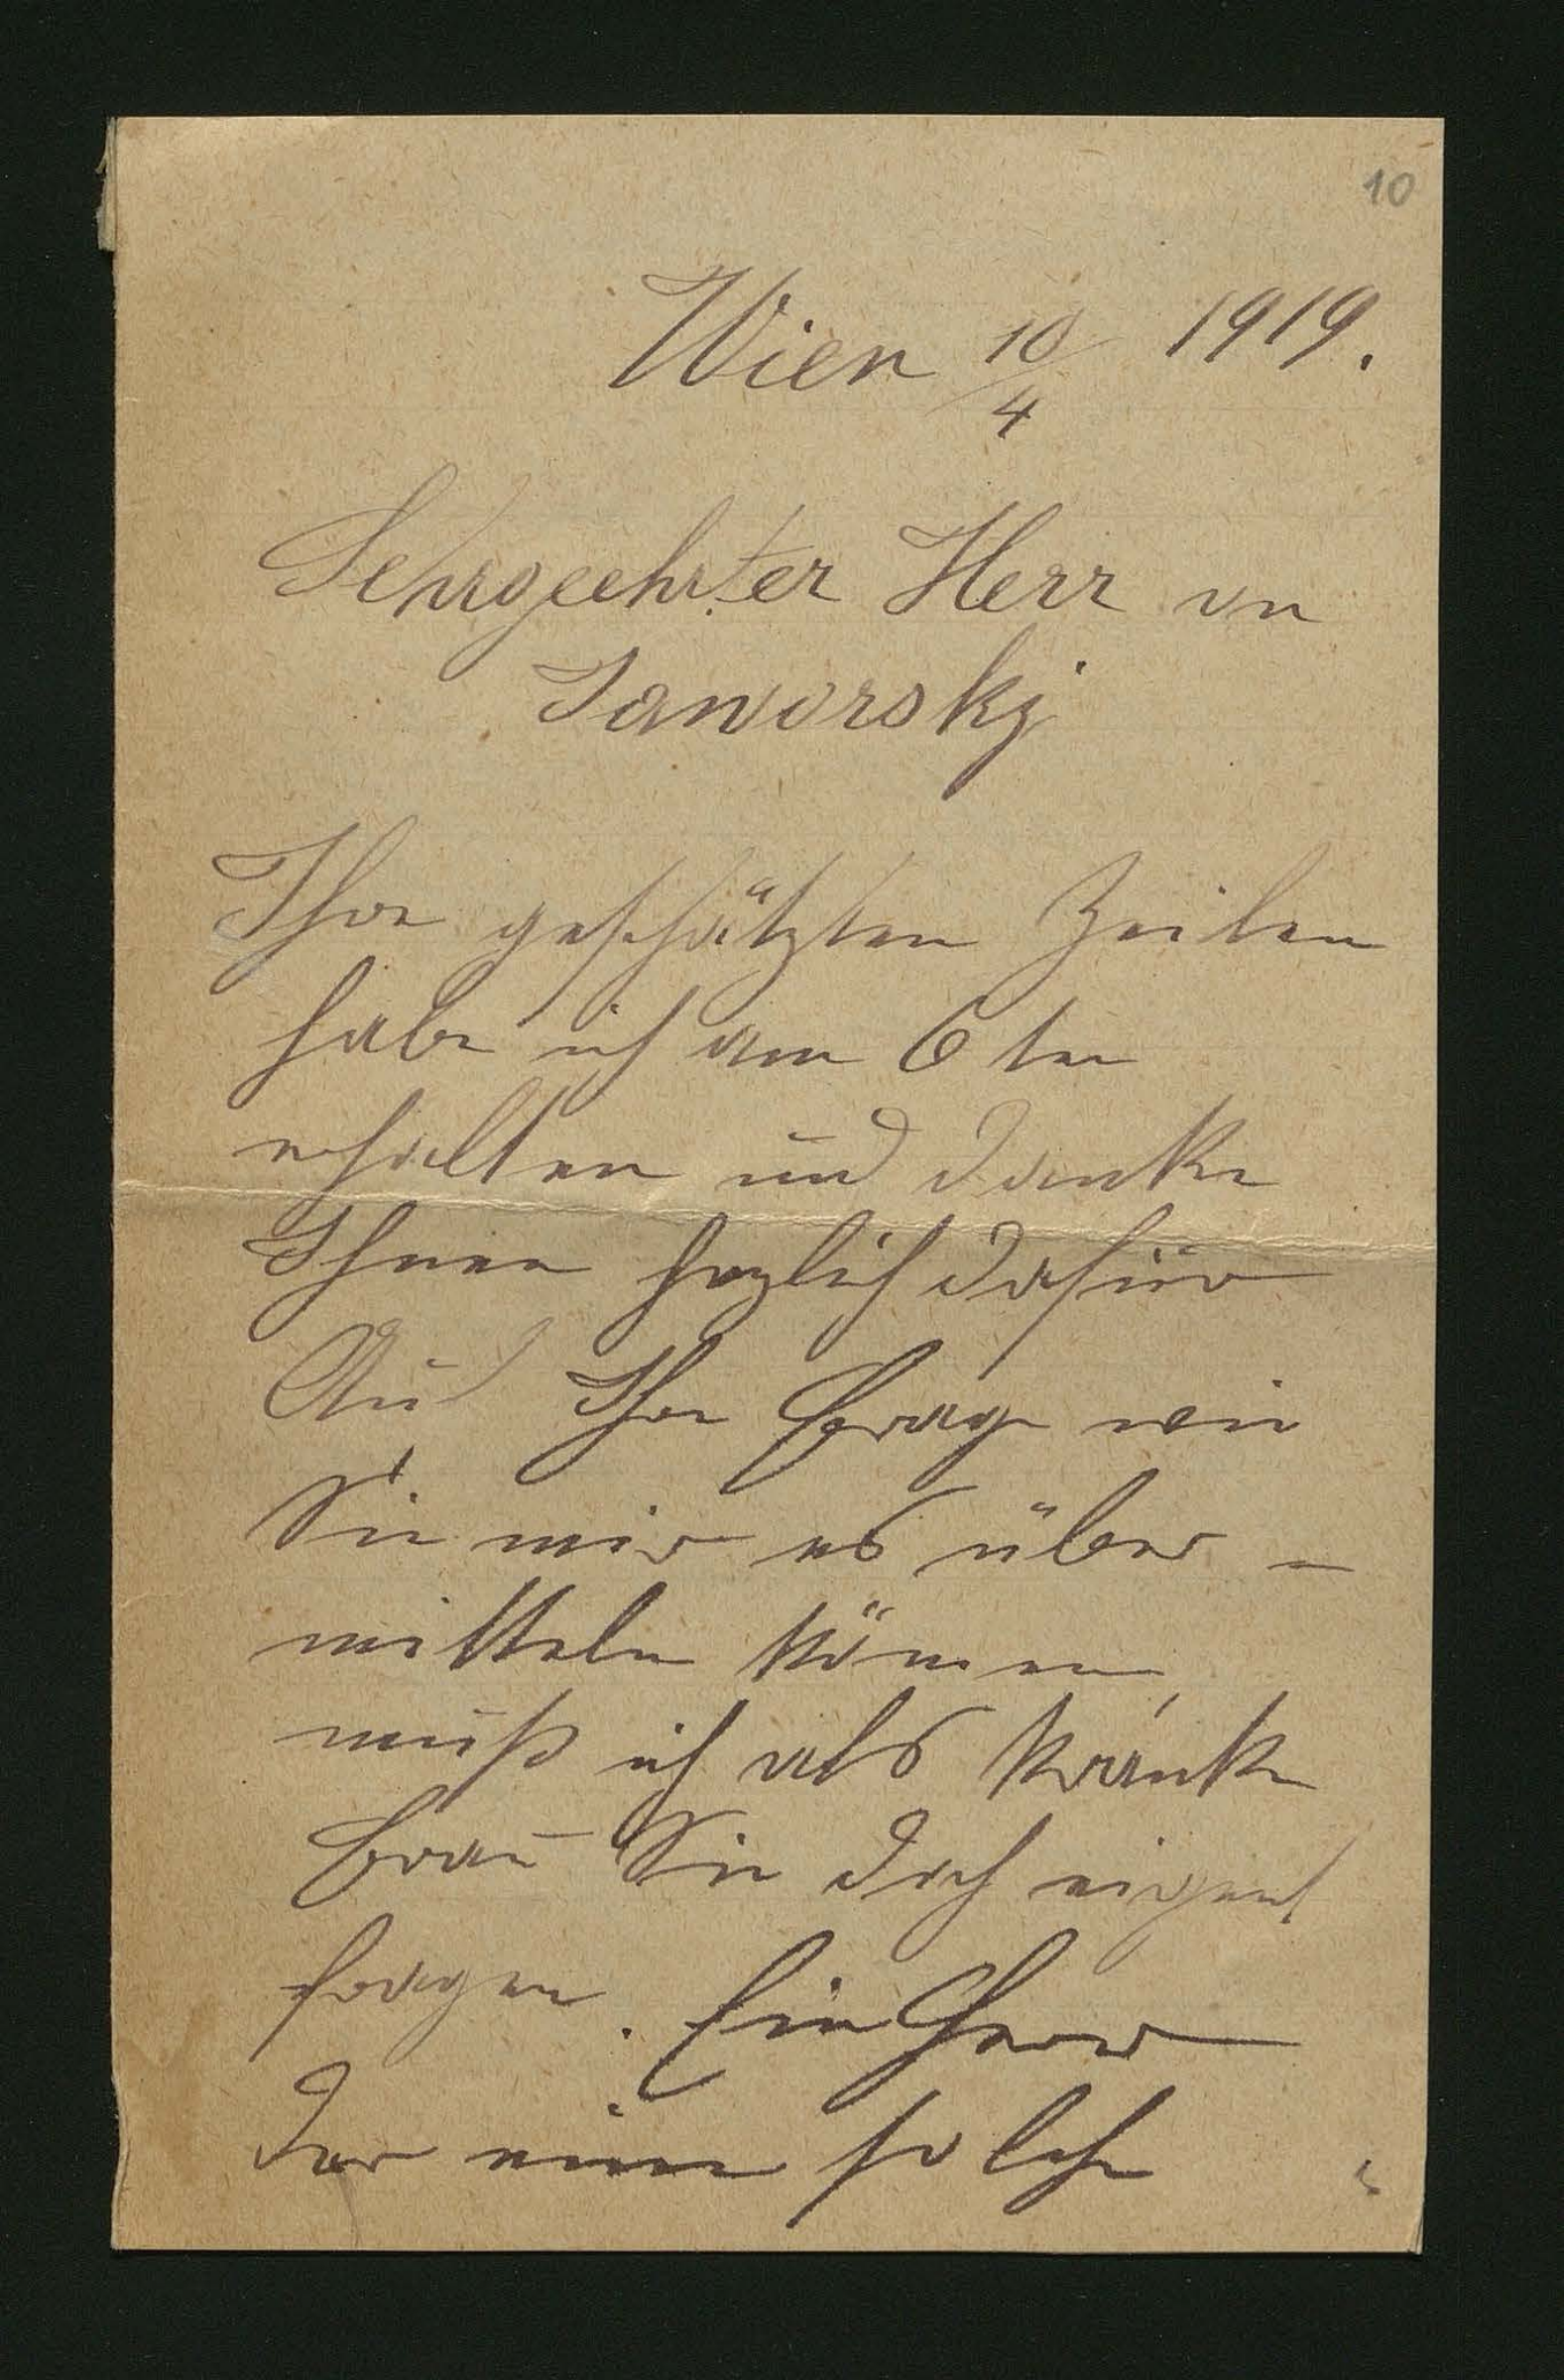 10
Wien 10/4 1919.
Sehrgeehrter Herr vn
Jaworskj
Ihre geschätzten Zeilen
habe ich am 6 ten
erhalten und danke
Ihnen herzlich dafür
Auf Ihre Frage wie
Sie mir es über-
mitteln können,
muß ich als kranke
Frau Sie doch eigens
fragen. Ein Herr
der eine solche